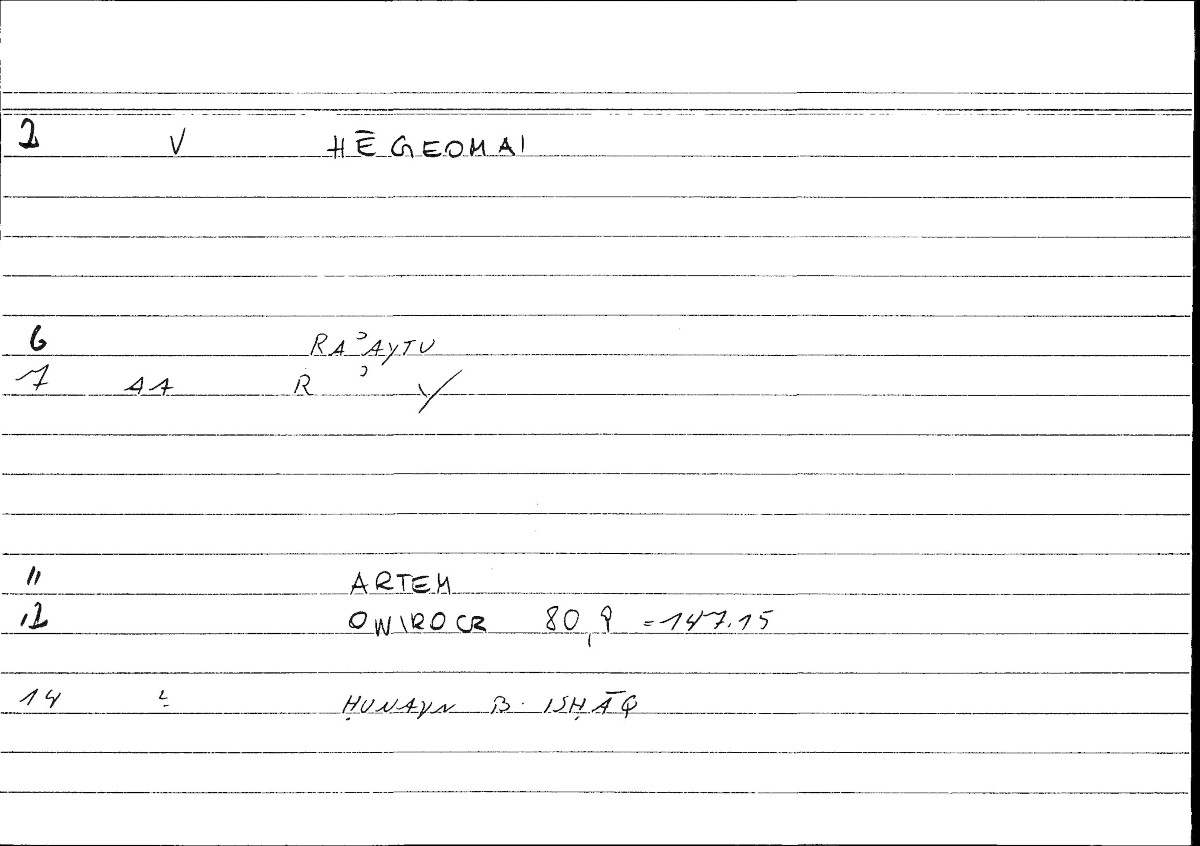 2 V HĒGEOMAI
6 RAʾAYTU
7 AA R ʾ Y
11 ARTEM
12 ONIROCR 80,9 =147.15
14 ḤUNAYN B. ISḤĀQ